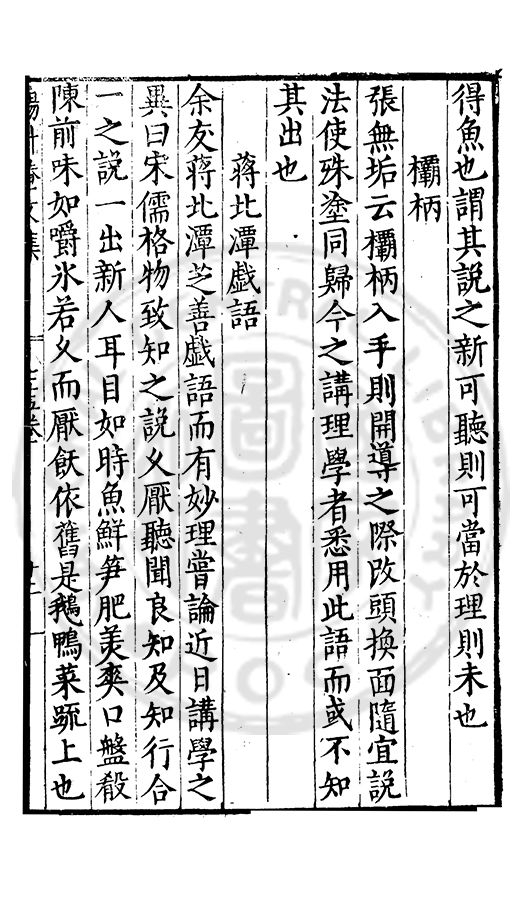 得魚也謂其說之新可聽則可當於理則未也
欛柄
張無垢云欛柄入手則開導之際改頭換面隨宜說
法使殊塗同歸今之講理學者悉用此語而或不知
其出也
蔣北潭戯語
余友蔣北潭芝善戯語而有妙理嘗論近日講學之
異曰宋儒格物致知之說乆厭聽聞良知及知行合
一之說一出新人耳目如時魚鮮笋肥羙爽口盤殽
陳前味如嚼氷若乆而厭飫依舊是鵝鴨菜蔬上也